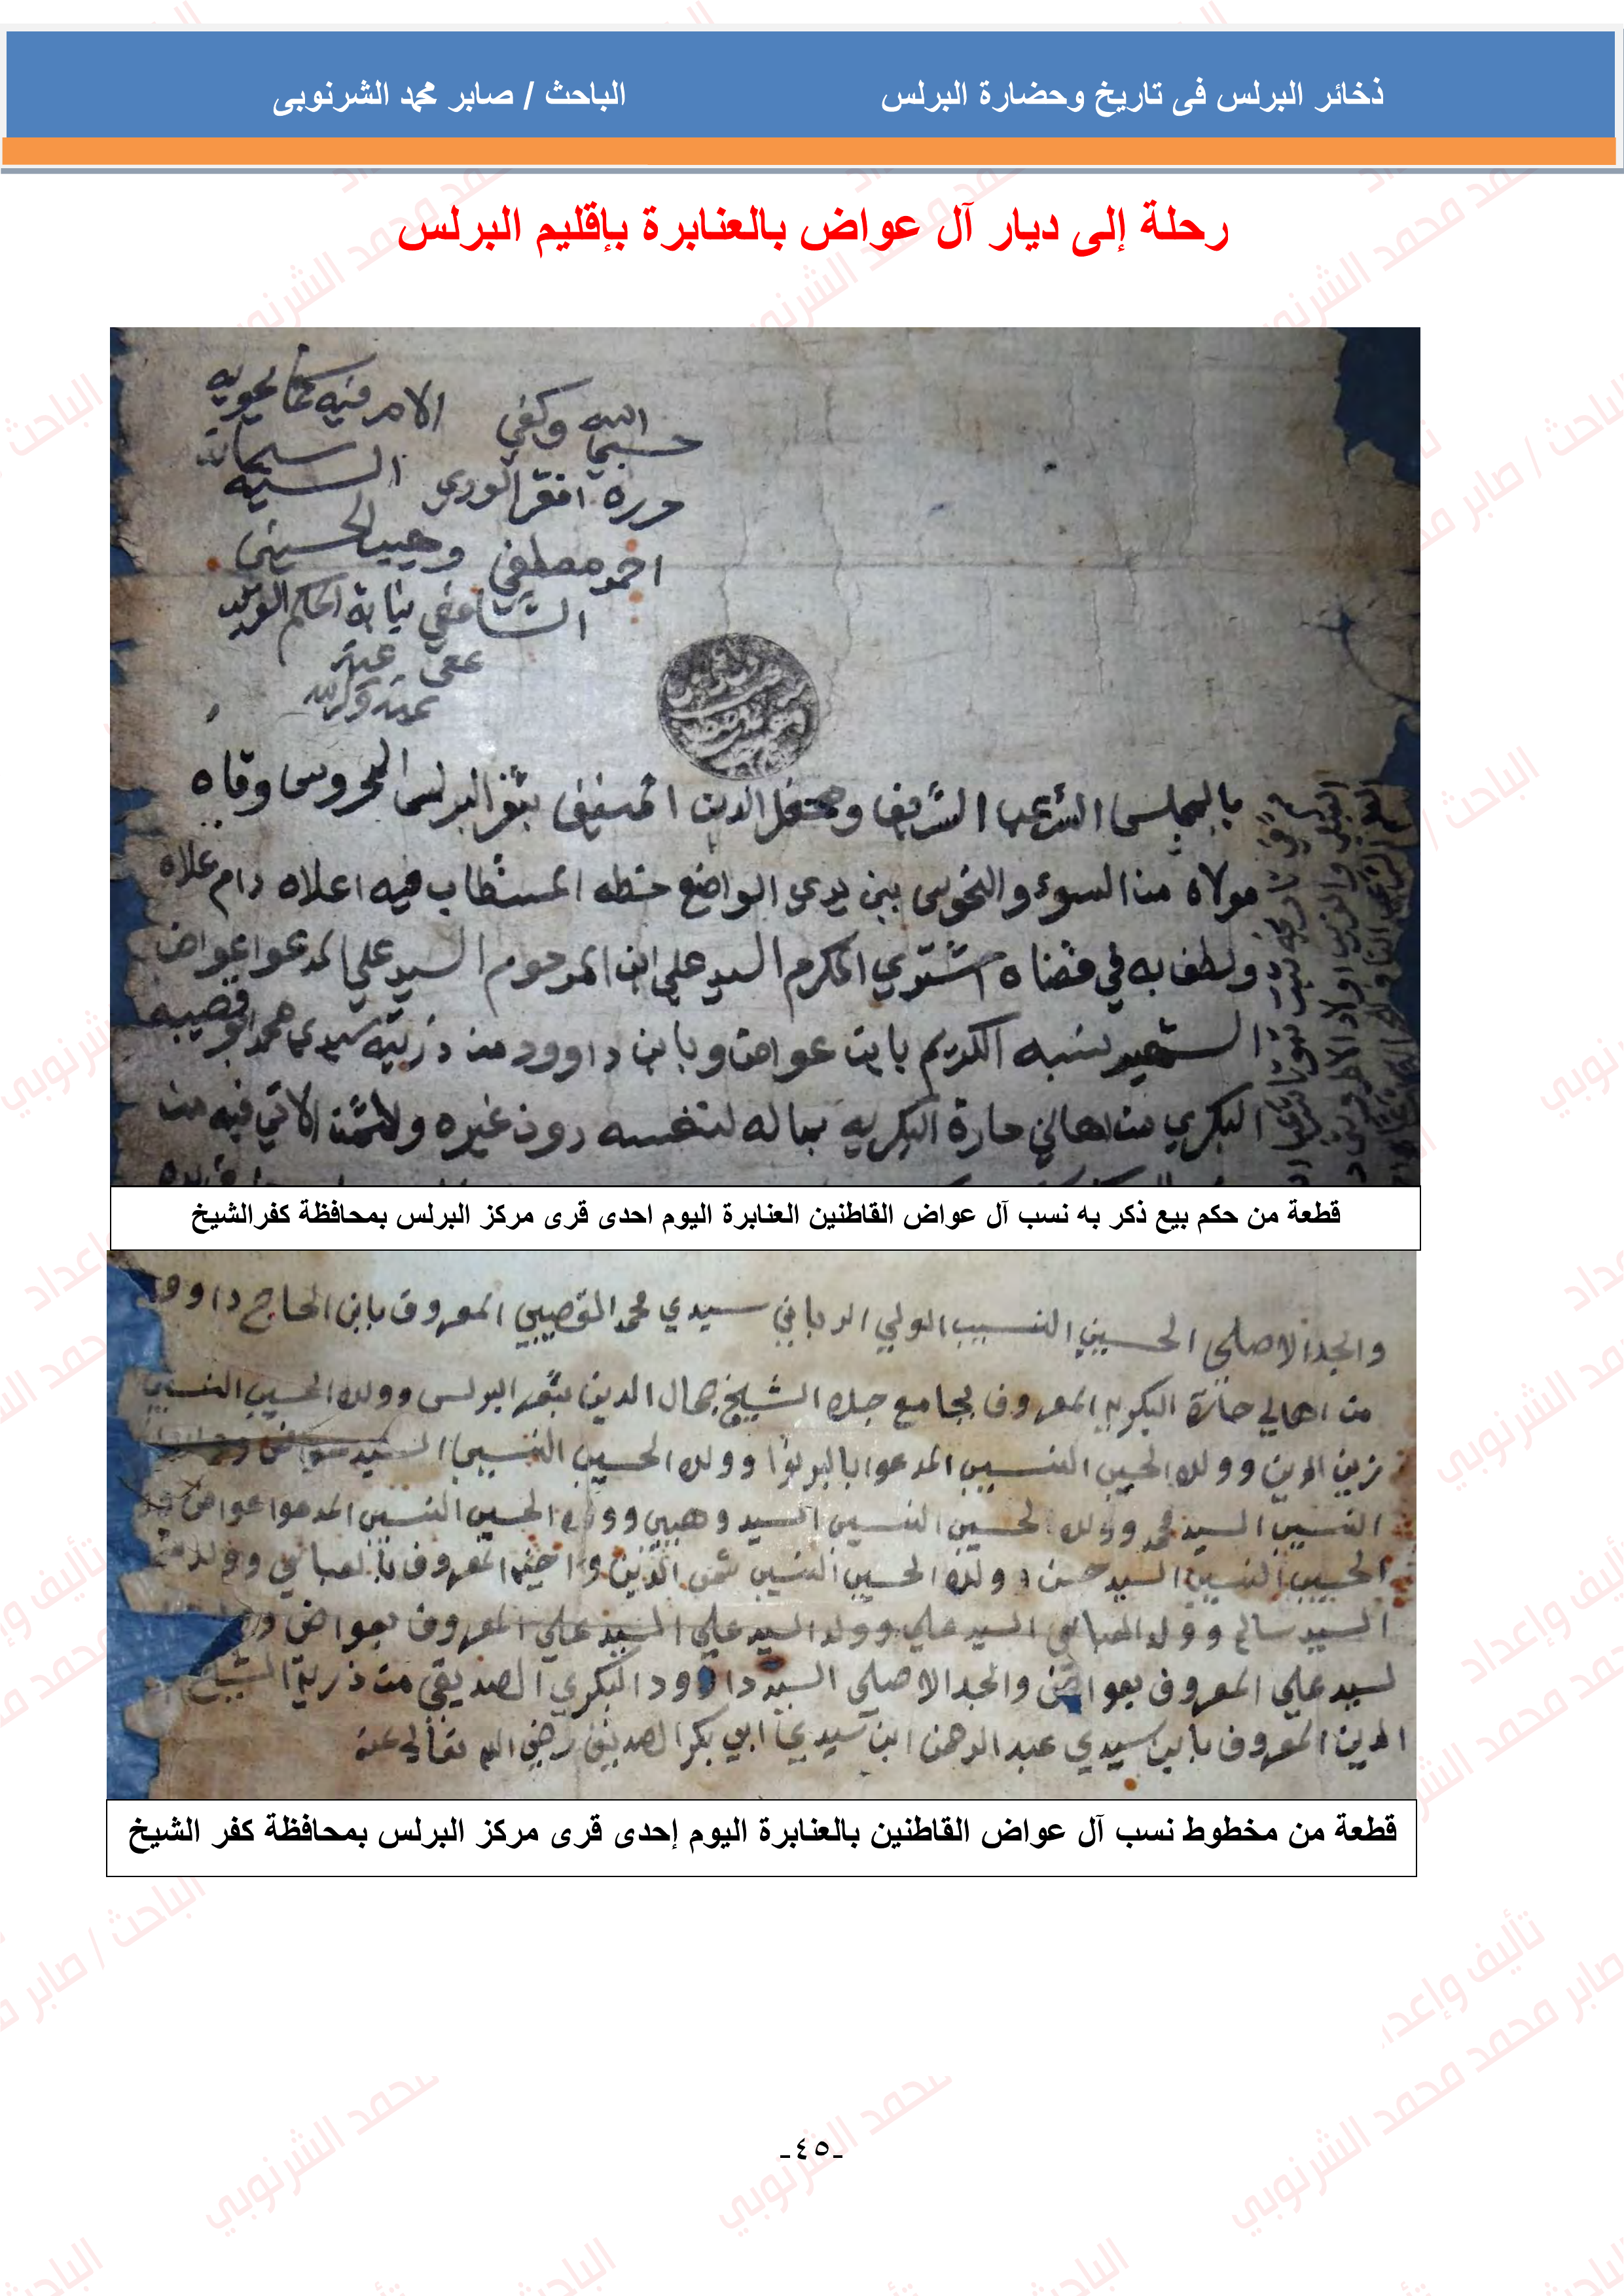 ذخائر البرلس فى تاريخ وحضارة البرلس الباحث / صابر محمد الشرنوبى
رحلة إلى ديار آل عواض بالعنابرة بإقليم البرلس
الامر فيه كما يحويه
حسبي الله وكفي
حرره افقر الوري السيد
احمد مصطفي وهيب الحسيني
الشافعي نيابة الحكم
عفى عنه
بمنه وكرمه
بالمجلس الشرعي الشريف ومحفل الدين المنيف بثغر البرلس المحروس وقاه
مولاه من السوء والنحوس بين يدي الواضع خطه المستطاب فيه اعلاه دام علاه
ولطف به في قضاه اشتري المكرم السيد علي ابن المرحوم السيد علي المدعوا عواض
الشهير نسبه الكريم بابن عواض وبابن داوود من ذرية سيدي محمد ابو قصيبه
البكري من اهالي حارة البكريه بماله لنفسه دون غيره ولا الاتي فيه من
قطعة من حكم بيع ذكر به نسب آل عواض القاطنين العنابرة اليوم احدى قرى مركز البرلس بمحافظة كفرالشيخ
والجد الاصلي الحسيب النسيب الولي الرباني سيدي محمد القصيبي المعروف بابن الحاج داوود
من اهالي حارة البكريه المعروف بجامع جده الشيخ جمال الدين بثغر البرلس وولده الحسيب النسيب
زين الدين وولده الحسيب النسيب المدعوا وولده الحسيب النسيب السيد
النسيب السيد محمد وولده الحسيب النسيب السيد وهيب وولده الحسيب النسيب المدعوا عواض
الحسيب النسيب السيد حسن وولده الحسيب النسيب شمس الدين واخيه المعروف بالعباسي وولده
السيد سالم وولد السيد علي وولد السيد علي السيد علي المعروف بعواض
لسيد علي المعروف بعواض والجد الاصلي السيد داوود البكري الصديقي من ذرية الشيخ
الدين المعروف بابن سيدي عبد الرحمن ابن سيدي ابي بكر الصديق رضي الله تعالي عنه
قطعة من مخطوط نسب آل عواض القاطنين بالعنابرة اليوم إحدى قرى مركز البرلس بمحافظة كفر الشيخ
-٤٥-